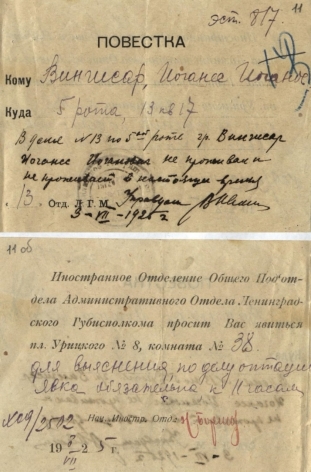 эст. 817.
11
ПОВЕСТКА
Кому Вингисар, Иоганс Иоганов
Куда 5 рота, 13 кв 17
В доме N 13 по 5ой роте гр. Вингисар
Иоганес не проживал и
не проживает в настоящее время
13
Отд. Л. Г. М. Управдом
3-VII-1925 г
11 об
Иностранное Отделение Общего Подот-
дела Административного Отдела Ленинград-
ского Губисполкома просит Вас явиться
пл. Урицкого № 8, комната № 38
для выяснения по делу оптации
Явка обязательна к 11 часам
Нач. Иностр. Отдел.
192 5 г.
VII